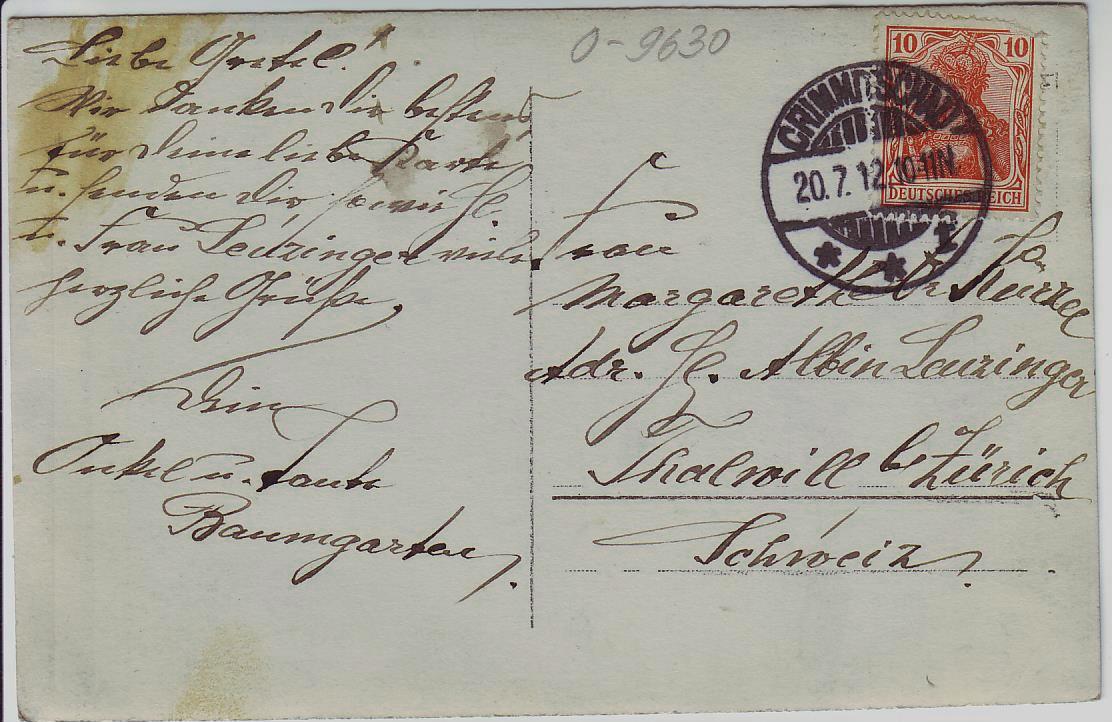 Liebe Gretel!
Wir danken dir bestens
für deine liebe Karte
u. senden dir sowie H.
u. Frau Leuzinger viele
herzliche Grüße.
Dein
Onkel u. Tante
Baumgarten.
0-9630
10 10
DEUTSCHES REICH
CRIMMITSCHAU
20.7.12.10-11N
1
Frau
Margarethe
Adr. H. Albin Leuzinger
Thalwill b. Zürich
Schweiz.